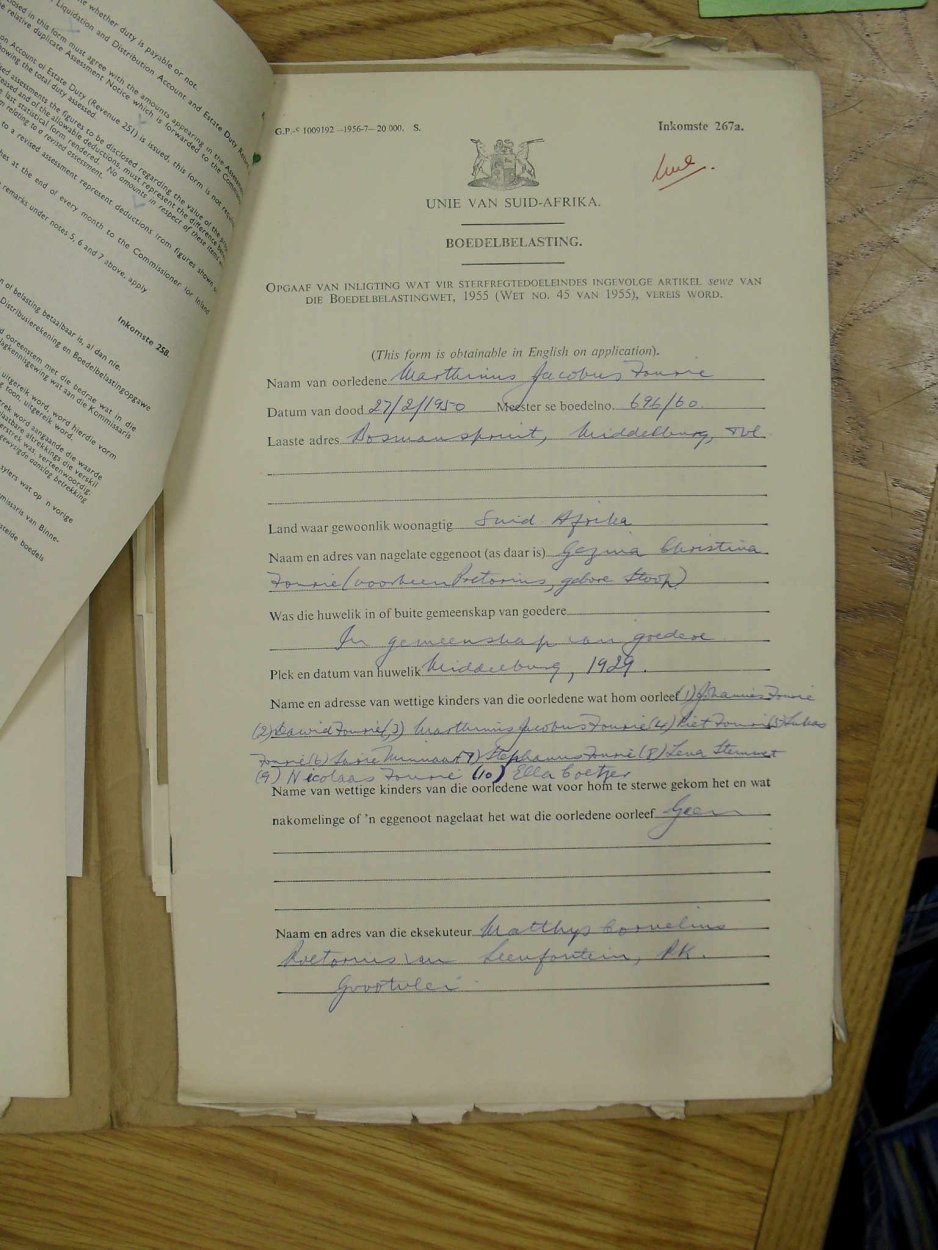 whether duty is payable or not.
closed in this form must agree with the amounts appearing in the
Liquidation and Distribution Account and Estate Duty
relative duplicate Assessment Notice which is forwarded to the
on Account of Estate Duty (Revenue 251) is issued, this form is not
showing the total duty assessed.
assessments the figures to be disclosed regarding the value of the
and of the allowable deductions, must represent the difference
last statistical form rendered. No amounts in respect of these items
relating to a revised assessment.
to a revised assessment represent deductions from figures shown
at the end of every month to the Commissioner for Inland
remarks under notes 5, 6 and 7 above, apply
Inkomste 258.
of belasting betaalbaar is, al dan nie.
ooreenstem met die bedrae wat in die
Distribusierekening en Boedelbelastingopgawe
wat aan die Kommissaris
uitgereik word, word hierdie vorm
toon, uitgereik word.
word aangaande die waarde
aftrekkings die verskil
verstrek was, verteenwoordig.
gewysigde aanslag betrekking
wat op 'n vorige
van Binne-
boedels
G.P.-S 1009192 —1956-7— 20 000. S.
Inkomste 267a.
UNIE VAN SUID-AFRIKA.
BOEDELBELASTING.
OPGAAF VAN INLIGTING WAT VIR STERFREGTEDOELEINDES INGEVOLGE ARTIKEL sewe VAN
DIE BOEDELBELASTINGWET, 1955 (WET NO. 45 VAN 1955), VEREIS WORD.
(This form is obtainable in English on application).
Naam van oorledene Marthinus Jacobus Fourie
Datum van dood 27/2/1950 Meester se boedelno. 696/60
Laaste adres Bosmanspruit, Middelburg, Tvl
Land waar gewoonlik woonagtig Suid Afrika
Naam en adres van nagelate eggenoot (as daar is) Gezina Christina
Fourie (voorheen Pretorius, gebore Stoop)
Was die huwelik in of buite gemeenskap van goedere
In gemeenskap van goedere
Plek en datum van huwelik Middelburg, 1929.
Name en adresse van wettige kinders van die oorledene wat hom oorleef (1) Johannes Fourie
(2) Dawid Fourie (3) Marthinus Jacobus Fourie (4) Piet Fourie (5) Lukas
Fourie (6) Sarie Minnaar (7) Stephanus Fourie (8) Lena Stemmet
(9) Nicolaas Fourie (10) Ella Coetzer
Name van wettige kinders van die oorledene wat voor hom te sterwe gekom het en wat
nakomelinge of 'n eggenoot nagelaat het wat die oorledene oorleef Geen
Naam en adres van die eksekuteur Matthys Cornelius
Pretorius van Leeufontein, PK.
Grootvlei